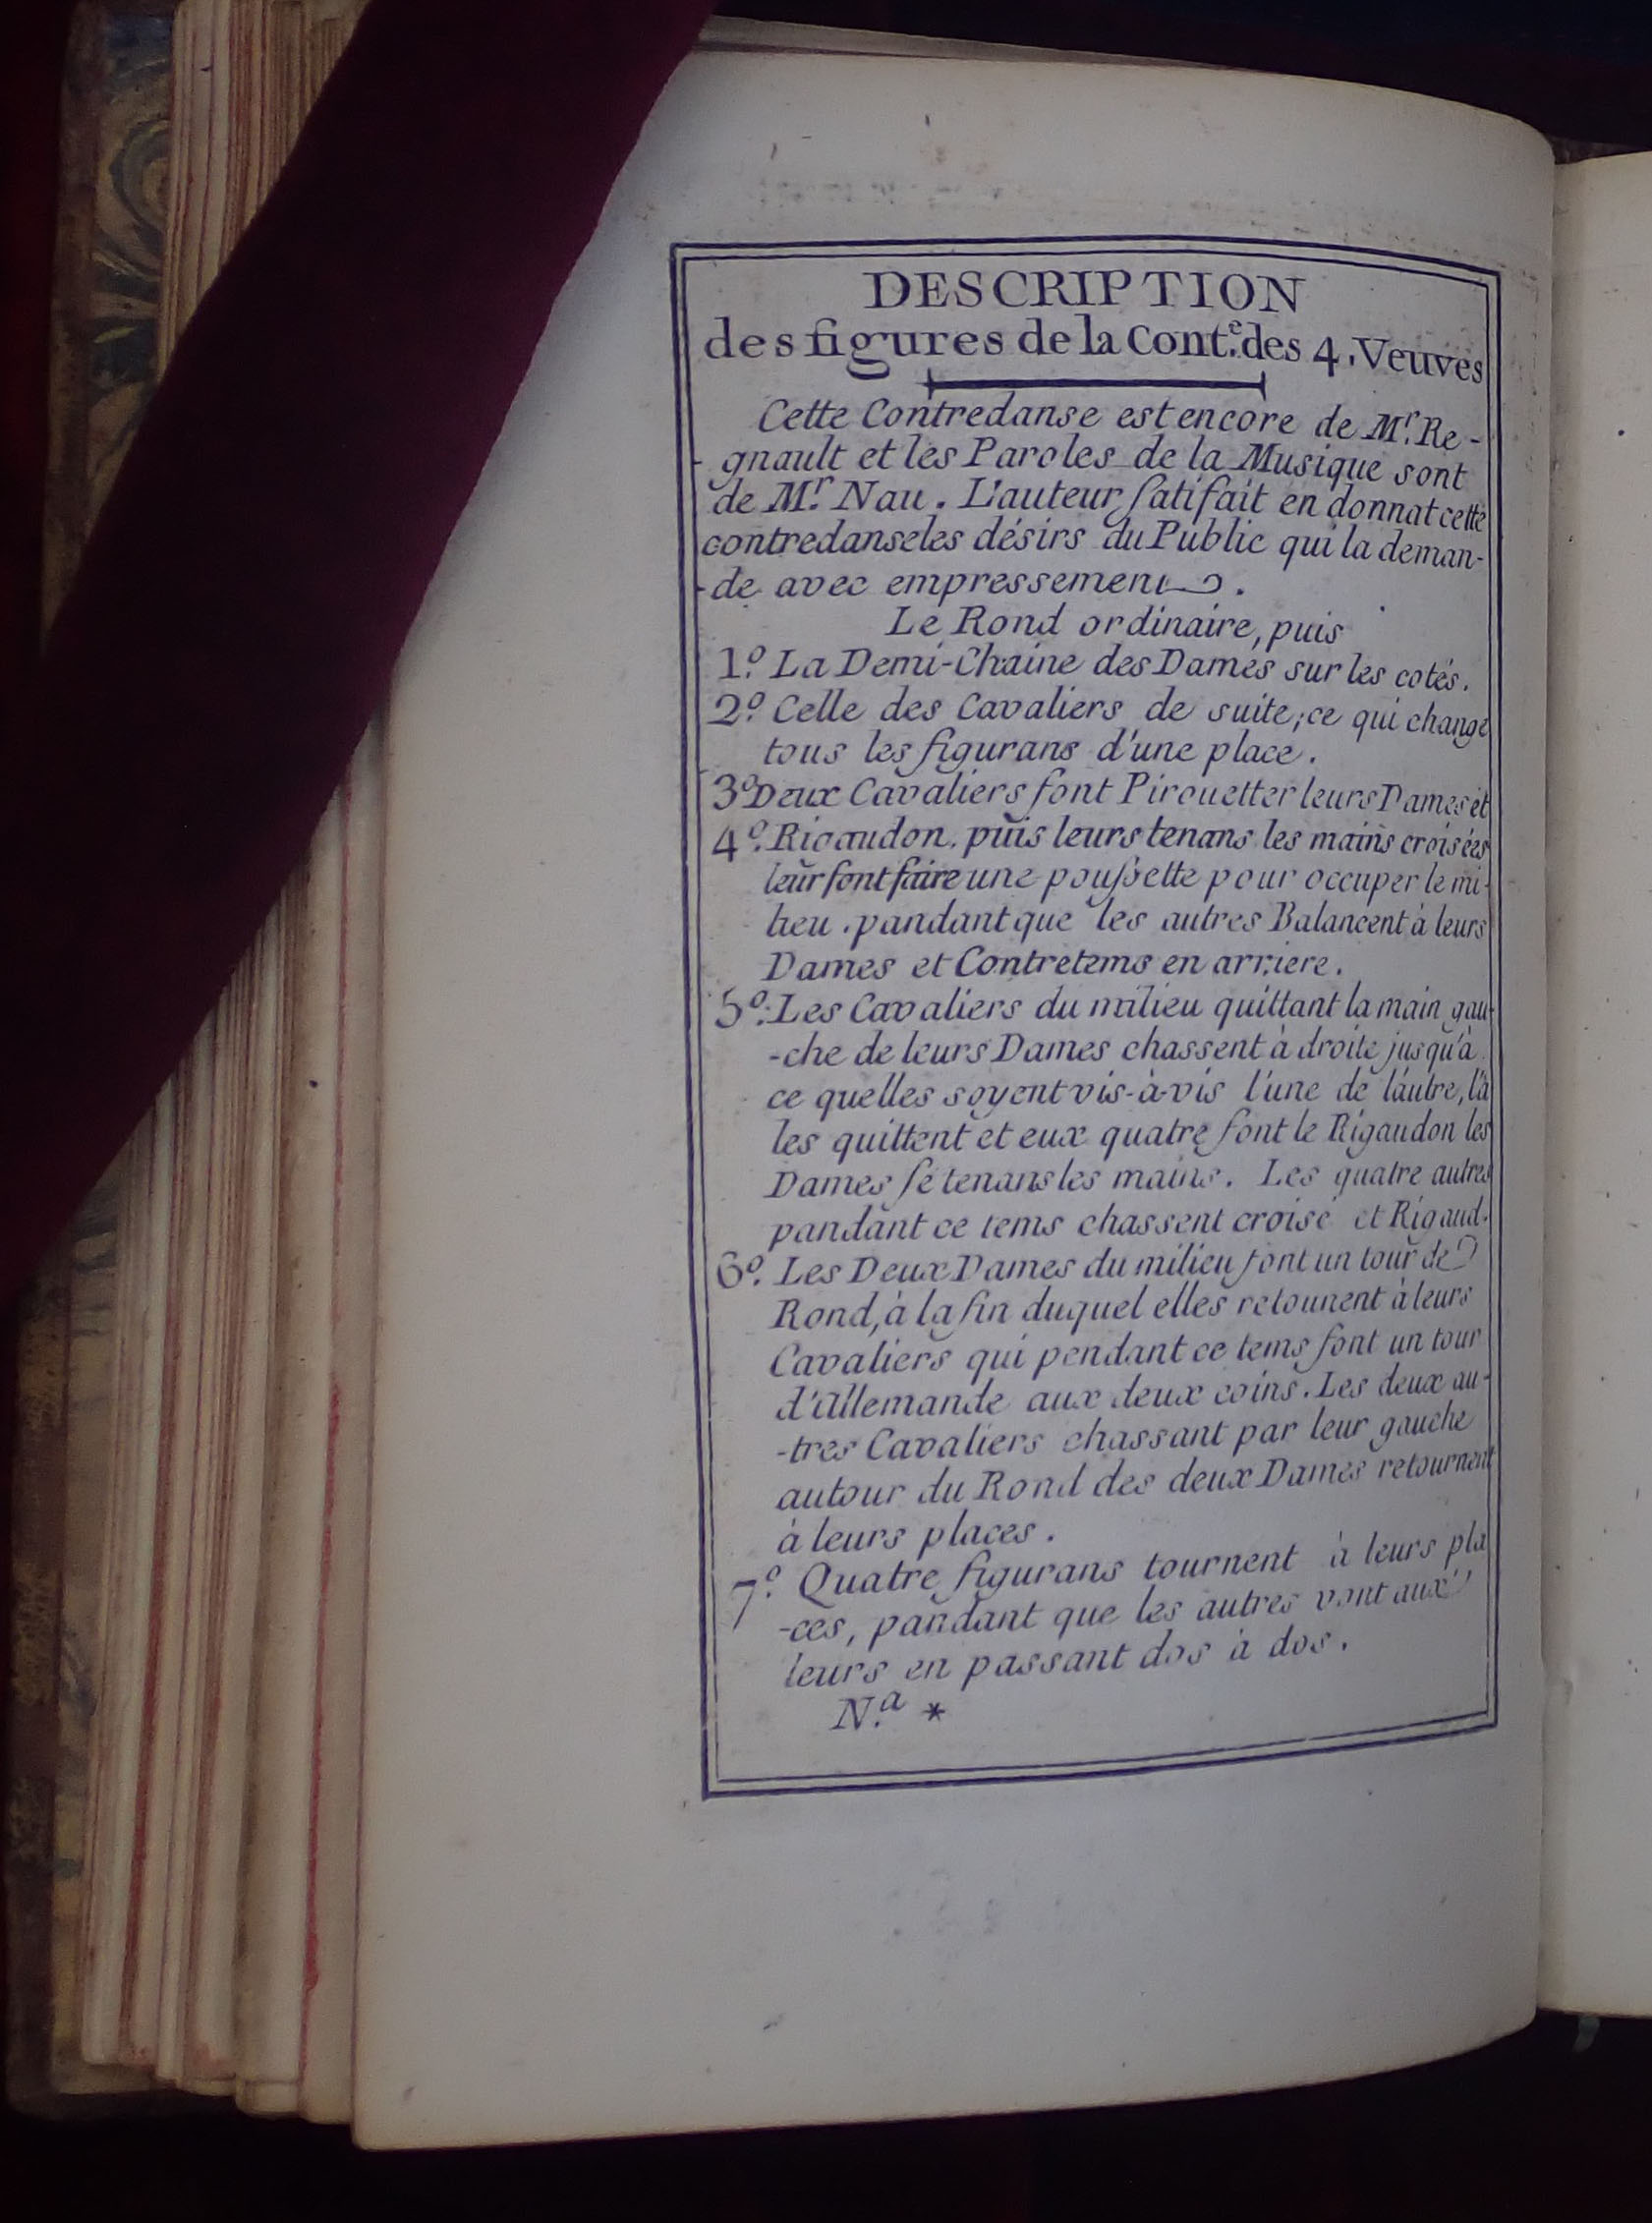 DESCRIPTION
des figures de la Cont.e des 4. Veuves
Cette Contredanse est encore de M.r Re-
gnault et les Paroles de la Musique sont
de M.r Nau. L'auteur satifait en donnat cette
contredanse les désirs du Public qui la deman-
-de avec empressement.
Le Rond ordinaire, puis
1.o La Demi-Chaine des Dames sur les cotés.
2.o Celle des Cavaliers de suite, ce qui change
tous les figurans d'une place.
3.o Deux Cavaliers font Pirouetter leurs Dames et
4.o Rigaudon. puis leurs tenans les mains croisées
leur font faire une poussette pour occuper le mi-
lieu. pandant que les autres Balancent à leurs
Dames et Contretems en arriere.
5.o Les Cavaliers du milieu quittant la main gau-
-che de leurs Dames chassent à droite jusqu'à
ce quelles soyent vis-à-vis l'une de l'autre, là
les quittent et eux quatre font le Rigaudon les
Dames se tenans les mains. Les quatre autres
pandant ce tems chassent croisé et Rigaud.
6.o Les Deux Dames du milieu font un tour de
Rond, à la fin duquel elles retounent à leurs
Cavaliers qui pendant ce tems font un tour
d'Allemande aux deux coins. Les deux au-
-tres Cavaliers chassant par leur gauche
autour du Rond des deux Dames retournent
à leurs places.
7.o Quatre figurans tournent à leurs pla
-ces, pandant que les autres vont aux
leurs en passant dos à dos.
N.a *